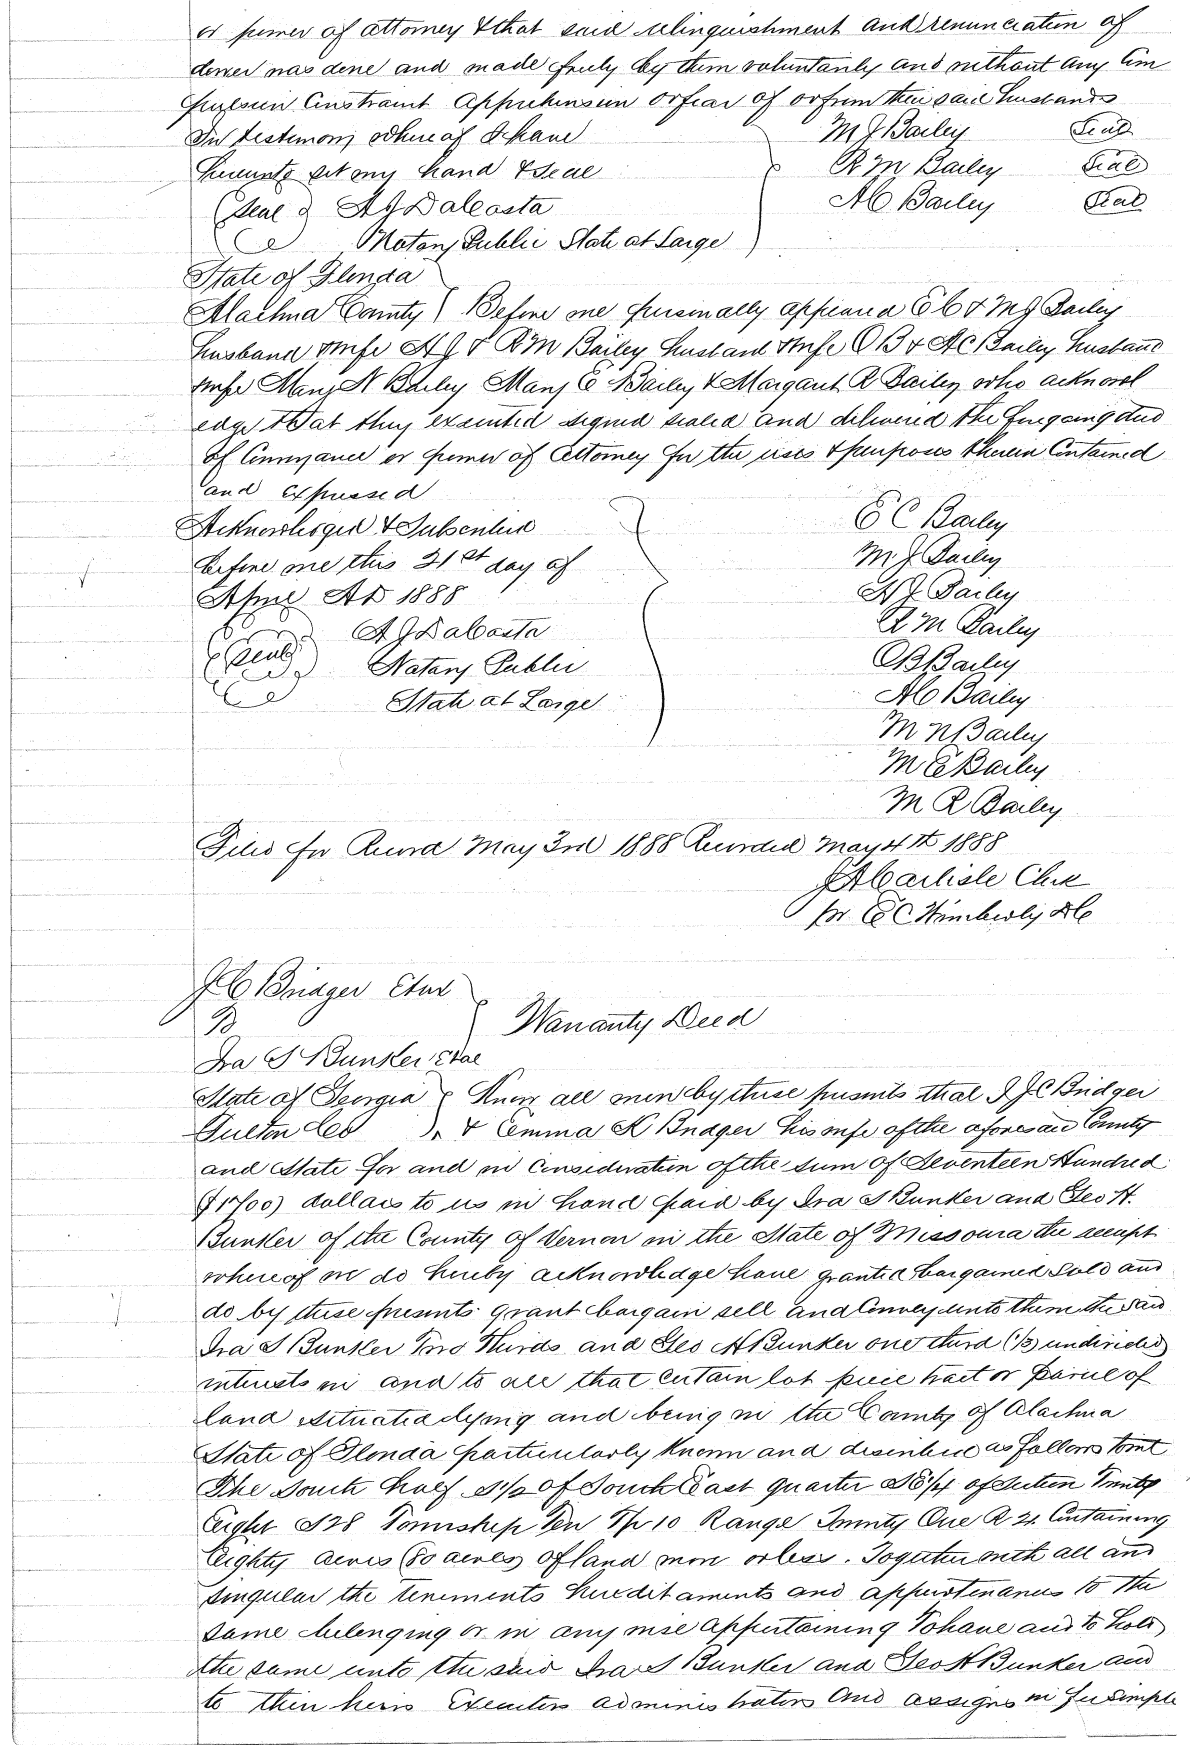 or power of attorney & that said relinquishment and renunciation of
dower was done and made freely by them voluntarily and without any Com
pulsion Constraint Apprehension or fear of or from their said husbands
In testimony whereof I have M J Bailey Seal
hereunto set my hand & Seal R M Bailey Seal
(Seal) A J DaCosta A C Bailey Seal
Notary Public State at Large
State of Florida
Alachua County Before me personally appeared E C & M J Bailey
husband & wife A J & R M Bailey husband & wife O B & A C Bailey husband
& wife Mary N Bailey Mary E Bailey & Margaret R Bailey who acknowl
edge that they executed signed sealed and delivered the foregoing deed
of Conveyance or power of attorney for the uses & purposes therein Contained
and expressed
Acknowledged & Subscribed E C Bailey
before me this 21st day of M J Bailey
April AD 1888 A J Bailey
A J DaCosta R M Bailey
(Seal) Notary Public O B Bailey
State at Large A C Bailey
M N Bailey
M E Bailey
M R Bailey
Filed for Record May 3rd 1888 Recorded May 4th 1888
J A Carlisle Clerk
pr E C Wimberly DC
J C Bridger Etux
To Warranty Deed
Ira S Bunker Etal
State of Georgia Know all men by these presents that I J C Bridger
Fulton Co & Emma K Bridger his wife of the aforesaid County
and State for and in Consideration of the sum of Seventeen Hundred
($1700) dollars to us in hand paid by Ira S Bunker and Geo H.
Bunker of the County of Vernon in the State of Missouria the receipt
whereof we do hereby acknowledge have granted bargained Sold and
do by these presents grant bargain sell and Convey unto them the Said
Ira S Bunker Two Thirds and Geo H Bunker one third (1/3) undivided
interests in and to all that certain lot piece tract or parcel of
land situated lying and being in the County of Alachua
State of Florida particularly known and described as follows towit
The South half S 1/2 of South East quarter SE 1/4 of Section Twenty
Eight S28 Township Ten Tp 10 Range Twenty One R 21 Containing
Eighty acres (80 acres) of land more or less. Together with all and
singular the tenements hereditaments and appurtenances to the
same belonging or in any wise appertaining To have and to hold
the same unto the said Ira S Bunker and Geo H Bunker and
to their heirs Executors administrators and assigns in fee simple